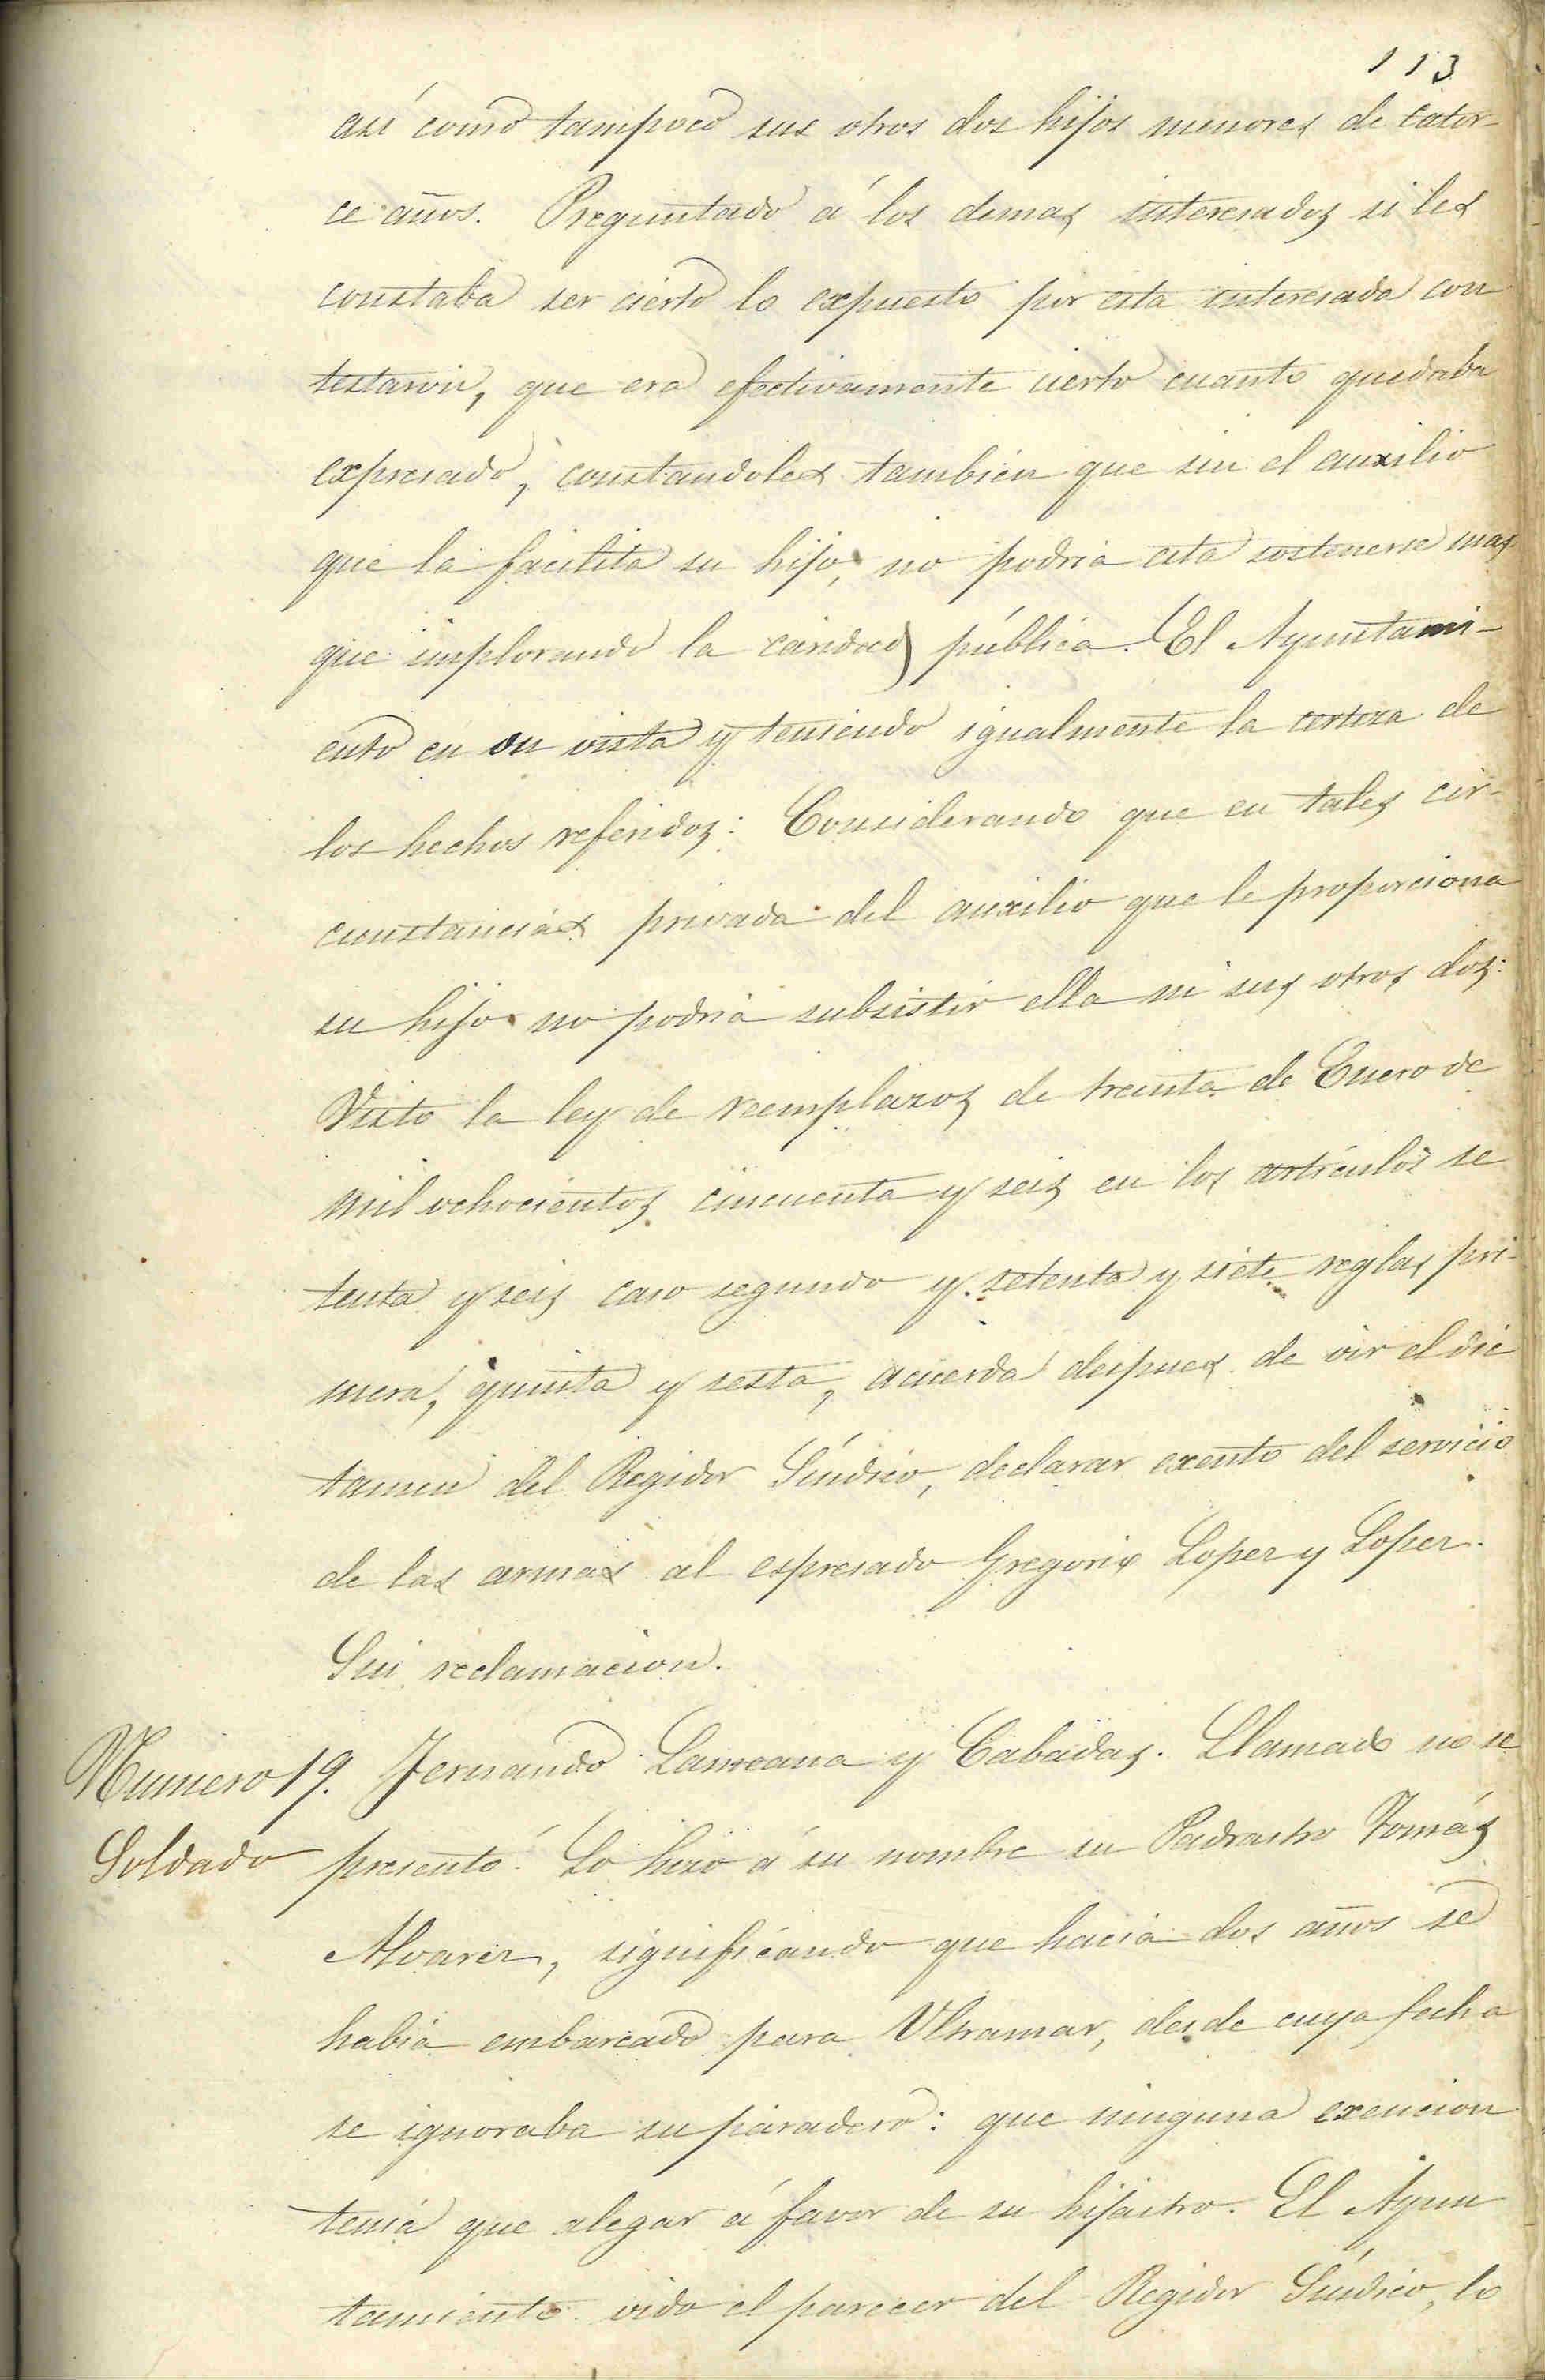 113
así como tampoco sus otros dos hijos menores de cator-
ce años. Preguntado á los demas interesados si les
constaba ser cierto lo expuesto por esta interesada con
testaron, que era efectivamente cierto cuanto quedaba
expresado, constandoles tambien que sin el auxilio
que la facilita su hijo, no podria esta sostenerse mas
que implorando la caridad pública. El Ayuntami-
ento en su vista y teniendo igualmente la certeza de
los hechos referidos: Considerando que en tales cir-
cunstancias privada del auxilio que le proporciona
su hijo no podria subsistir ella ni sus otros dos:
Visto la ley de reemplazos de treinta de Enero de
mil ochocientos cincuenta y seis en los artículos se
tenta y seis caso segundo y setenta y siete reglas pri-
mera, quinta y sesta, acuerda despues de oir el dic
tamen del Regidor Síndico, declarar exento del servicio
de las armas al espresado Gregorio Lopez y Lopez.
Sin reclamacion.
Numero 19. Fernando Laureana y Cabadas. Llamado no se
Soldado presentó. Lo hizo á su nombre su Padrastro Tomás
Alvarez, significando que hacia dos años se
habia embarcado para Ultramar, desde cuya fecha
se ignoraba su paradero: que ninguna exencion
tenia que alegar á favor de su hijastro. El Ayun
tamiento oido el parecer del Regidor Síndico, lo